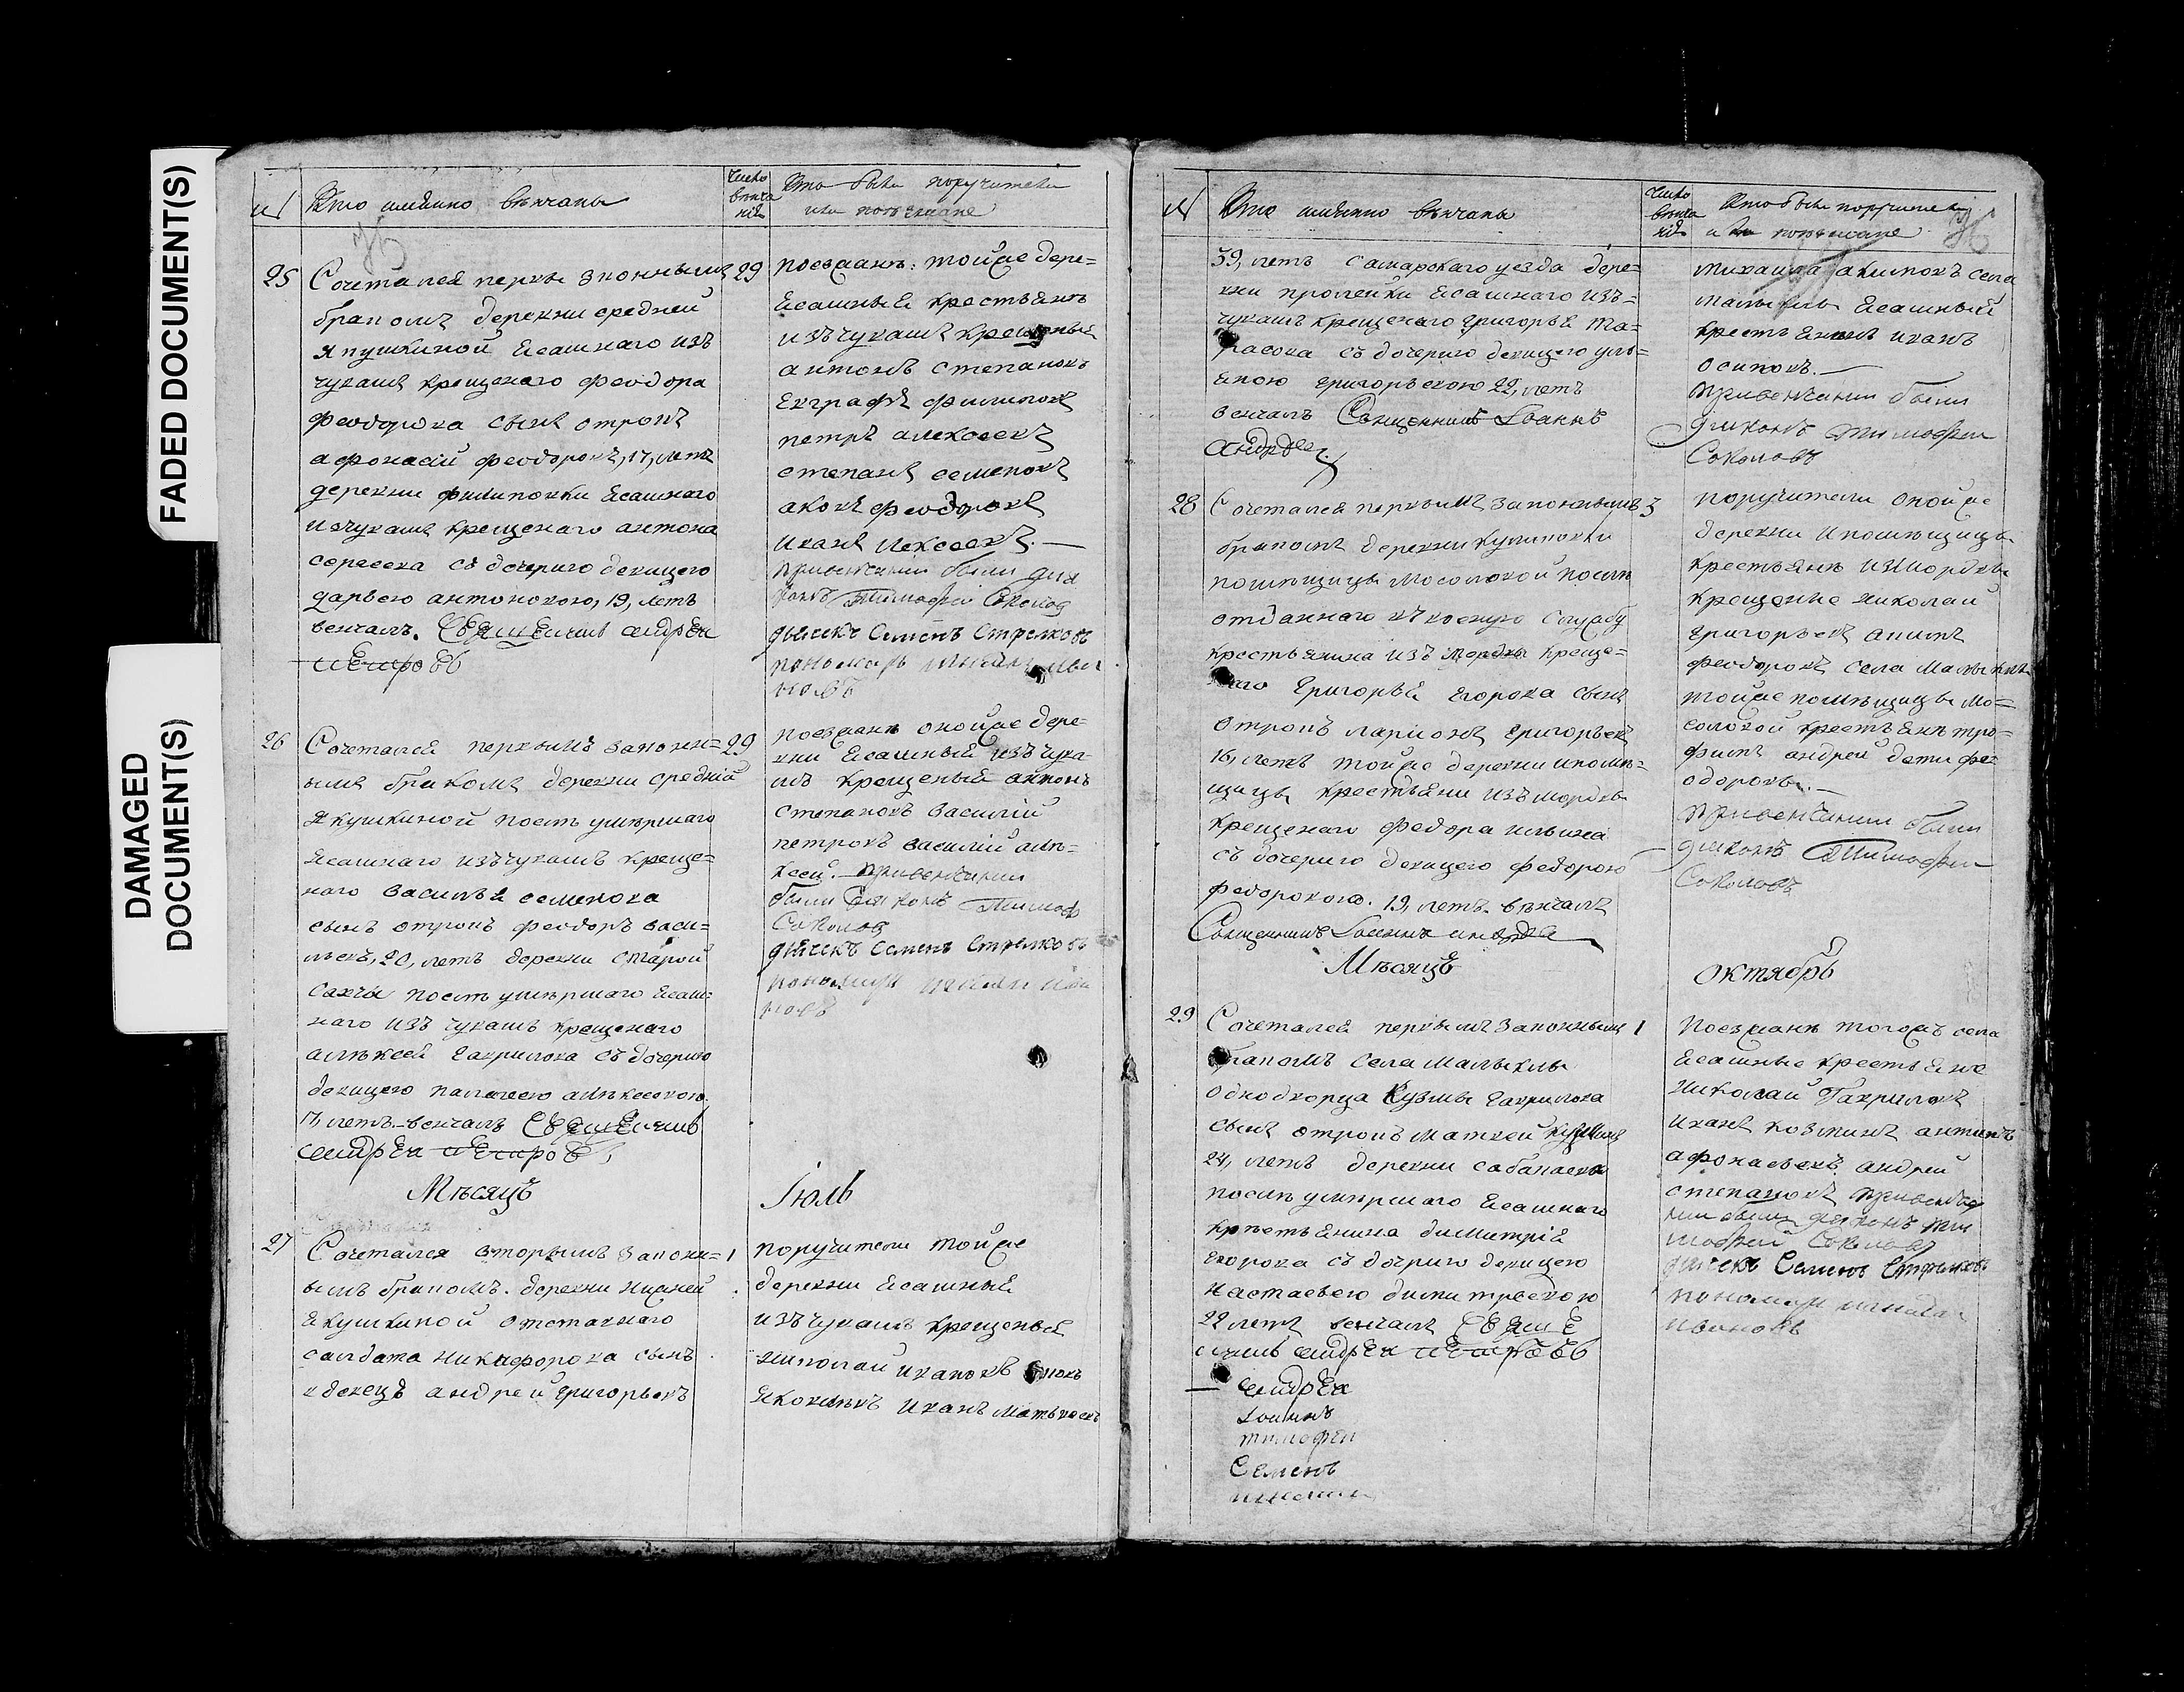 FADED DOCUMENT(S)
DAMAGED
DOCUMENT(S)
№
Кто имянно венчаны
число
венча
нія
Кто были поручители
или поезжане
25
Сочетался первы законнымъ
бракомъ деревни средней
якушкиной ясашнаго изъ
чувашъ крещенаго феодора
феодорова сынъ отрокъ
афонасій феодоровъ, 17, летъ
деревни филиповки ясашнаго
изчувашъ крещенаго антона
сергеева съ дочерию девицею
дарьею антоновою, 19, летъ
венчалъ. Священникъ андреи
петровъ
29
поезжанъ: тойже дере=
ясашныя крестьянъ
изъ чувашъ крещеныя
антонъ степановъ
евграфъ филиповъ
петръ алексеевъ
степанъ семеновъ
аковъ феодоровъ
иванъ алексеевъ. —
привенчании были дия
конъ Тимофеи Соколов
дьячекъ Семенъ Стрелковъ
пономарь
новъ
26
Сочетался первымъ законн=
ымъ бракомъ деревни средній
якушкиной послъ умершаго
ясашнаго изъ чувашъ креще=
наго василья семенова
сынъ отрокъ феодоръ васи=
льевъ, 20, летъ деревни старой
сахчи послъ умершаго ясаш=
наго изъ чувашъ крещенаго
алъксея гаврилова съ дочерию
девицею палагею алъксеевою.
17 летъ венчалъ Священникъ
андреи петровъ
29
поезжанъ онойже дере=
вни ясашныя изъ чува
шъ крещеныя антонъ
степановъ василій
петровъ василій алъ=
ксеи. — привенчании
были диаконъ Тимоф
Соколов
дьячекъ Семенъ Стрелковъ
пономарь
новъ
Мъсяцъ
Іюль
27
Сочетался вторымъ законн=
ымъ бракомъ. деревни нижней
якушкиной отставнаго
салдата никифорова сынъ
вдовецъ андреи григорьевъ
1
поручители тойже
деревни ясашныя
изъ чувашъ крещеныя
николаи ивановъ
яковлевъ иванъ матвъевъ
№
Кто имянно венчаны
число
венча
нія
Кто были поручители
или поезжане
39, летъ самарскаго уезда дере=
вни пролейки ясашнаго изъ=
чувашъ крещенаго григорья та=
расова съ дочерию девицею уль=
яною григорьевою 22, летъ
венчалъ Священникъ Іоаннъ
андрее
михаила акимовъ села
малыклы ясашный
крестьянинъ иванъ
осиповъ. —
привенчании были
дияконъ Тимофеи
Соколовъ
28
Сочетался первымъ законнымъ
бракомъ деревни куликовки
помъщицы мосоловой послъ
отданнаго въ военую службу
крестьянина изъ мордвы креще=
наго григорья егорова сынъ
отрокъ ларионъ григорьевъ
16, летъ тойже деревни ипомъ=
щицы крестьяни изъ мордвы
крещенаго федора ильина
съ дочерию девицею федорою
федоровою. 19, летъ. венчалъ
Священникъ Іоаннъ андрее
3
поручители онойже
деревни ипомъщицы
крестьянъ измордвы
крещеные николаи
григорьевъ акимъ
феодоровъ села малыклы
тойже помъщицы мо=
соловой крестьянъ тро=
фимъ андреи дети фе=
одоровы. —
привенчании были
дияконъ Тимофеи
Соколовъ
Мъсяцъ
октябрь
29
Сочетался первымъ законнымъ
бракомъ села малыклы
однодворца кузмы гаврилова
сынъ отрокъ матвей кузминъ
24, летъ деревни сабакаева
послъ умършаго ясашнаго
кръстьянина димитрія
егорова съ дочрию девицею
настасьею димитревою
22 летъ венчалъ Свяще
нникъ андреи петровъ
1
поезжанъ тогожъ села
ясашные крестьяне
Николаи Гавриловъ
иванъ козминъ антипъ
афонасьевъ андреи
степановъ привенча
нии были дияконъ Ти
мофеи Соколовъ
дьячекъ Семенъ Стрелковъ
пономарь
ивановъ
андреи
Іоаннъ
тимофеи
Семенъ